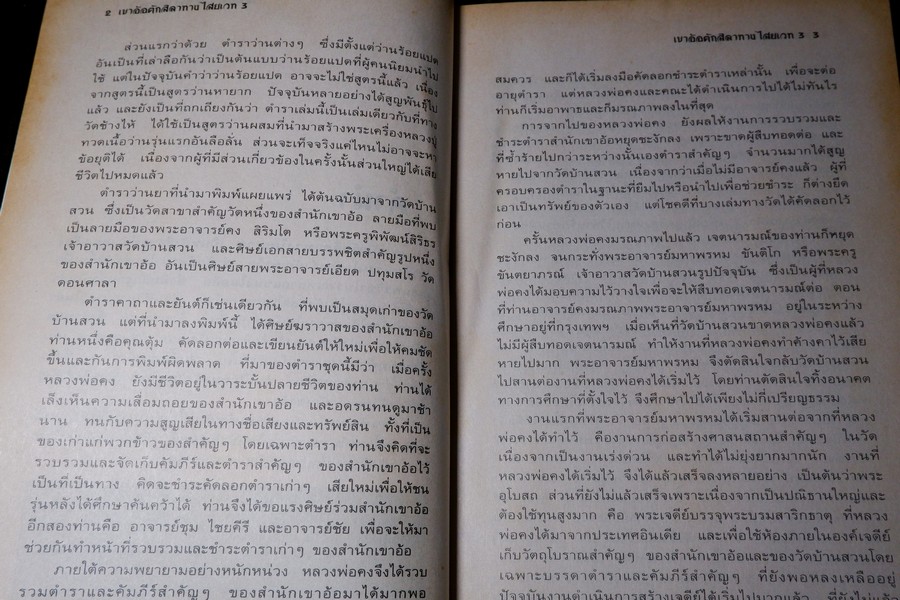 ๒ เขาอ้อตักสิลาทางไสยเวท 3
ส่วนแรกว่าด้วย ตำราว่านต่างๆ ซึ่งมีตั้งแต่ว่านร้อยแปด
อันเป็นที่เล่าลือกันว่าเป็นต้นแบบว่านร้อยแปดที่ผู้คนนิยมนำไป
ใช้ แต่ในปัจจุบันคำว่าว่านร้อยแปด อาจจะไม่ใช่สูตรนี้แล้ว เนื่อง
จากสูตรนี้เป็นสูตรว่านหายาก ปัจจุบันหลายอย่างได้สูญพันธุ์ไป
แล้ว และยังเป็นที่ถกเถียงกันว่า ตำราเล่มนี้เป็นเล่มเดียวกับที่ทาง
วัดช้างไห้ ได้ใช้เป็นสูตรว่านผสมที่นำมาสร้างพระเครื่องหลวงปู่
ทวดเนื้อว่านรุ่นแรกอันลือลั่น ส่วนจะเท็จจริงแค่ไหนไม่อาจจะหา
ข้อยุติได้ เนื่องจากผู้ที่มีส่วนเกี่ยวข้องในครั้งนั้นส่วนใหญ่ได้เสีย
ชีวิตไปหมดแล้ว
ตำราว่านยาที่นำมาพิมพ์เผยแพร่ ได้ต้นฉบับมาจากวัดบ้าน
สวน ซึ่งเป็นวัดสาขาสำคัญวัดหนึ่งของสำนักเขาอ้อ ลายมือที่พบ
เป็นลายมือของพระอาจารย์คง สิริมโต หรือพระครูพิพัฒน์สิริธร
เจ้าอาวาสวัดบ้านสวน และศิษย์เอกสายบรรพชิตสำคัญรูปหนึ่ง
ของสำนักเขาอ้อ อันเป็นศิษย์สายพระอาจารย์เอียด ปทุมสโร วัด
ดอนศาลา
ตำราคาถาและยันต์ก็เช่นเดียวกัน ที่พบเป็นสมุดเก่าของวัด
บ้านสวน แต่ที่นำมาลงพิมพ์นี้ ได้ศิษย์ฆราวาสของสำนักเขาอ้อ
ท่านหนึ่งคือคุณตุ้ม คัดลอกต่อและเขียนยันต์ให้ใหม่เพื่อให้คมชัด
ขึ้นและกันการพิมพ์ผิดพลาด ที่มาของตำราชุดนี้มีว่า เมื่อครั้ง
หลวงพ่อคง ยังมีชีวิตอยู่ในวาระบั้นปลายชีวิตของท่าน ท่านได้
เล็งเห็นความเสื่อมถอยของสำนักเขาอ้อ และอดรนทนดูมาช้า
นาน ทนกับความสูญเสียในทางชื่อเสียงและทรัพย์สิน ทั้งที่เป็น
ของเก่าแก่พวกข้าวของสำคัญๆ โดยเฉพาะตำรา ท่านจึงคิดที่จะ
รวบรวมและจัดเก็บคัมภีร์และตำราสำคัญๆ ของสำนักเขาอ้อไว้
เป็นที่เป็นทาง คิดจะชำระคัดลอกตำราเก่าๆ เสียใหม่เพื่อให้ชน
รุ่นหลังได้ศึกษาค้นคว้าได้ ท่านจึงได้ขอแรงศิษย์ร่วมสำนักเขาอ้อ
อีกสองท่านคือ อาจารย์ชุม ไชยคีรี และอาจารย์ชัย เพื่อจะให้มา
ช่วยกันทำหน้าที่รวบรวมและชำระตำราเก่าๆ ของสำนักเขาอ้อ
ภายใต้ความพยายามอย่างหนักหน่วง หลวงพ่อคงจึงได้รวบ
รวมตำราและคัมภีร์สำคัญๆ ของสำนักเขาอ้อมาได้มากพอ
เขาอ้อตักสิลาทางไสยเวท 3 3
สมควร และก็ได้เริ่มลงมือคัดลอกชำระตำราเหล่านั้น เพื่อจะต่อ
อายุตำรา แต่หลวงพ่อคงและคณะได้ดำเนินการไปได้ไม่ทันไร
ท่านก็เริ่มอาพาธและก็มรณภาพลงในที่สุด
การจากไปของหลวงพ่อคง ยังผลให้งานการรวบรวมและ
ชำระตำราสำนักเขาอ้อหยุดชะงักลง เพราะขาดผู้สืบทอดต่อ และ
ที่ซ้ำร้ายไปกว่าระหว่างนั้นเองตำราสำคัญๆ จำนวนมากได้สูญ
หายไปจากวัดบ้านสวน เนื่องจากว่าเมื่อไม่มีอาจารย์คงแล้ว ผู้ที่
ครอบครองตำราในฐานะที่ยืมไปหรือนำไปเพื่อช่วยชำระ ก็ต่างยึด
เอาเป็นทรัพย์ของตัวเอง แต่โชคดีที่บางเล่มทางวัดได้คัดลอกไว้
ก่อน
ครั้นหลวงพ่อคงมรณภาพไปแล้ว เจตนารมณ์ของท่านก็หยุด
ชะงักลง จนกระทั่งพระอาจารย์มหาพรหม ขันติโก หรือพระครู
ขันตยาภรณ์ เจ้าอาวาสวัดบ้านสวนรูปปัจจุบัน ซึ่งเป็นผู้ที่หลวง
พ่อคงได้มอบความไว้วางใจเพื่อจะให้สืบทอดเจตนารมณ์ต่อ ตอน
ที่ท่านอาจารย์คงมรณภาพพระอาจารย์มหาพรหม อยู่ในระหว่าง
ศึกษาอยู่ที่กรุงเทพฯ เมื่อเห็นที่วัดบ้านสวนขาดหลวงพ่อคงแล้ว
ไม่มีผู้สืบทอดเจตนารมณ์ ทำให้งานที่หลวงพ่อคงทำค้างคาไว้เสีย
หายไปมาก พระอาจารย์มหาพรหม จึงตัดสินใจกลับวัดบ้านสวน
ไปสานต่องานที่หลวงพ่อคงได้เริ่มไว้ โดยท่านตัดสินใจทิ้งอนาคต
ทางการศึกษาที่ตั้งใจไว้ จึงศึกษาไปได้เพียงไม่กี่เปรียญธรรม
งานแรกที่พระอาจารย์มหาพรหมได้เริ่มสานต่อจากที่หลวง
พ่อคงได้ทำไว้ คืองานการก่อสร้างศาสนสถานสำคัญๆ ในวัด
เนื่องจากเป็นงานเร่งด่วน และทำได้ไม่ยุ่งยากมากนัก งานที่
หลวงพ่อคงได้เริ่มไว้ จึงได้แล้วเสร็จลงหลายอย่าง เป็นต้นว่าพระ
อุโบสถ ส่วนที่ยังไม่แล้วเสร็จเพราะเนื่องจากเป็นปณิธานใหญ่และ
ต้องใช้ทุนสูงมาก คือ พระเจดีย์บรรจุพระบรมสาริกธาตุ ที่หลวง
พ่อคงได้มาจากประเทศอินเดีย และเพื่อใช้ห้องภายในองค์เจดีย์
เก็บวัตถุโบราณสำคัญๆ ของสำนักเขาอ้อและของวัดบ้านสวนโดย
เฉพาะบรรดาตำราและคัมภีร์สำคัญๆ ที่ยังพอหลงเหลืออยู่
ปัจจุบันงานดำเนินการสร้างเจดีย์ได้เริ่มไปมากแล้ว ที่ยังไม่แล้ว